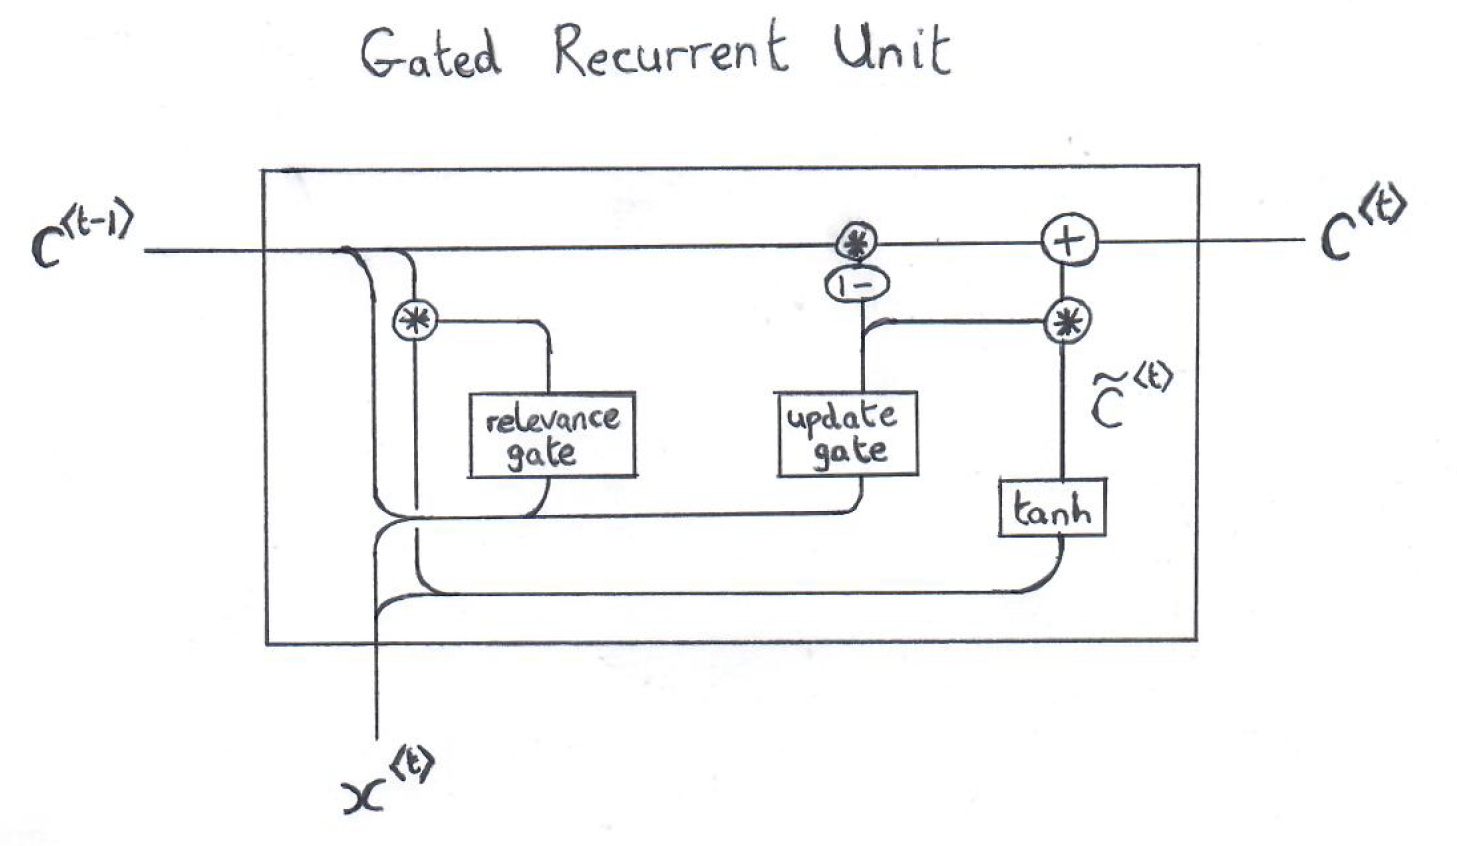 Gated Recurrent Unit
C<t-1>
*
+
C<t>
1-
*
*
C̃<t>
relevance
gate
update
gate
tanh
x<t>